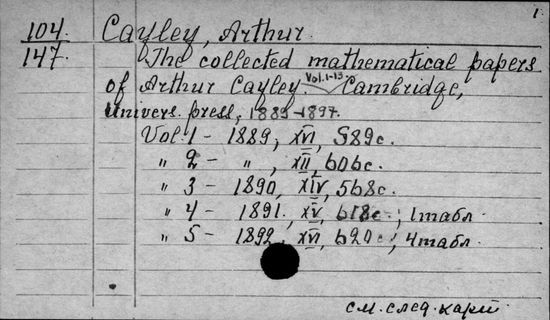 1.
104. Cayley, Arthur.
147. The collected mathematical papers
of Arthur Cayley. Vol. 1-13. Cambridge,
Univers. press, 1889-1897.
Vol. 1 - 1889, XVI, 589c.
" 2 - " , XII, 606c.
" 3 - 1890, XIV, 568c.
" 4 - 1891, XV, 618c., 1табл.
" 5 - 1892, XVI, 620c., 4табл.
см. след. карт